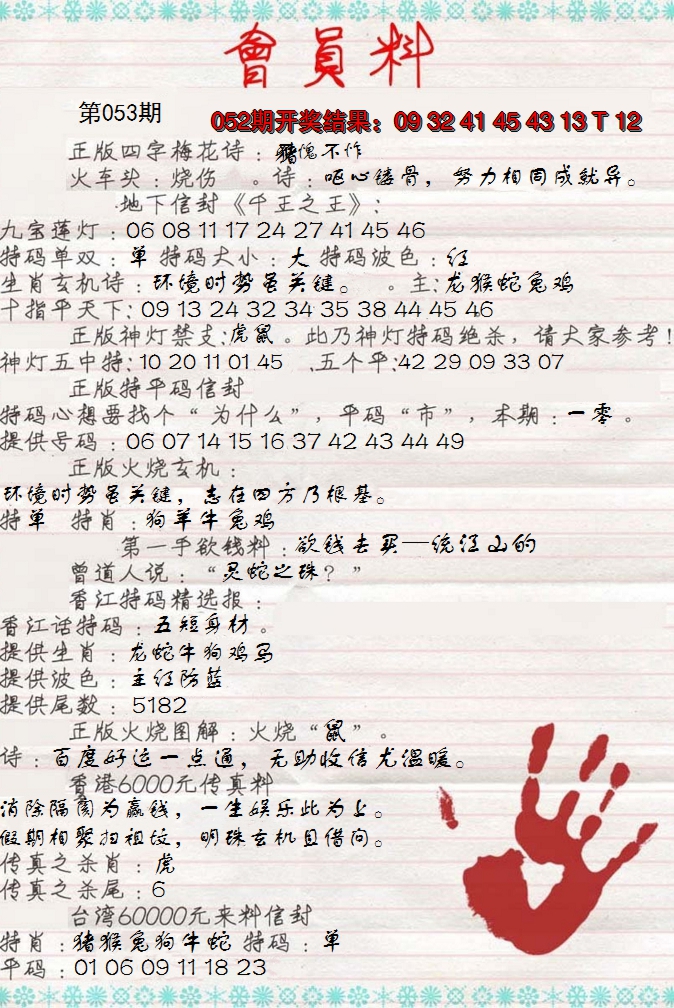 會員料
第053期
052期开奖结果：09 32 41 45 43 13 T 12
正版四字梅花诗：猪愧不作
火车头：烧伤 。诗：呕心镂骨，努力相同成就异。
地下信封《千王之王》：
九宝莲灯：06 08 11 17 24 27 41 45 46
特码单双：单 特码大小：大 特码波色：红
生肖玄机诗：环境时势虽关键。 。主：龙猴蛇兔鸡
十指平天下：09 13 24 32 34 35 38 44 45 46
正版神灯禁支：虎鼠。此乃神灯特码绝杀，请大家参考！
神灯五中特：10 20 11 01 45 .五个平：42 29 09 33 07
正版特平码信封
特码心想要找个“为什么”，平码“市”，本期：一零。
提供号码：06 07 14 15 16 37 42 43 44 49
正版火烧玄机：
环境时势虽关键，志在四方乃根基。
特单 特肖：狗羊牛兔鸡
第一手欲钱料：欲钱去买一统江山的
曾道人说：“灵蛇之珠？”
香江特码精选报：
香江话特码：五短身材。
提供生肖：龙蛇牛狗鸡马
提供波色：主红防蓝
提供尾数：5182
正版火烧图解：火烧“鼠”。
诗：百度好运一点通，无助收信尤温暖。
香港6000元传真料
消除隔阂为赢钱，一生娱乐此为上。
假期相聚扫祖坟，明珠玄机且借问。
传真之杀肖：虎
传真之杀尾：6
台湾60000元来料信封
特肖：猪猴兔狗牛蛇 特码：单
平码：01 06 09 11 18 23